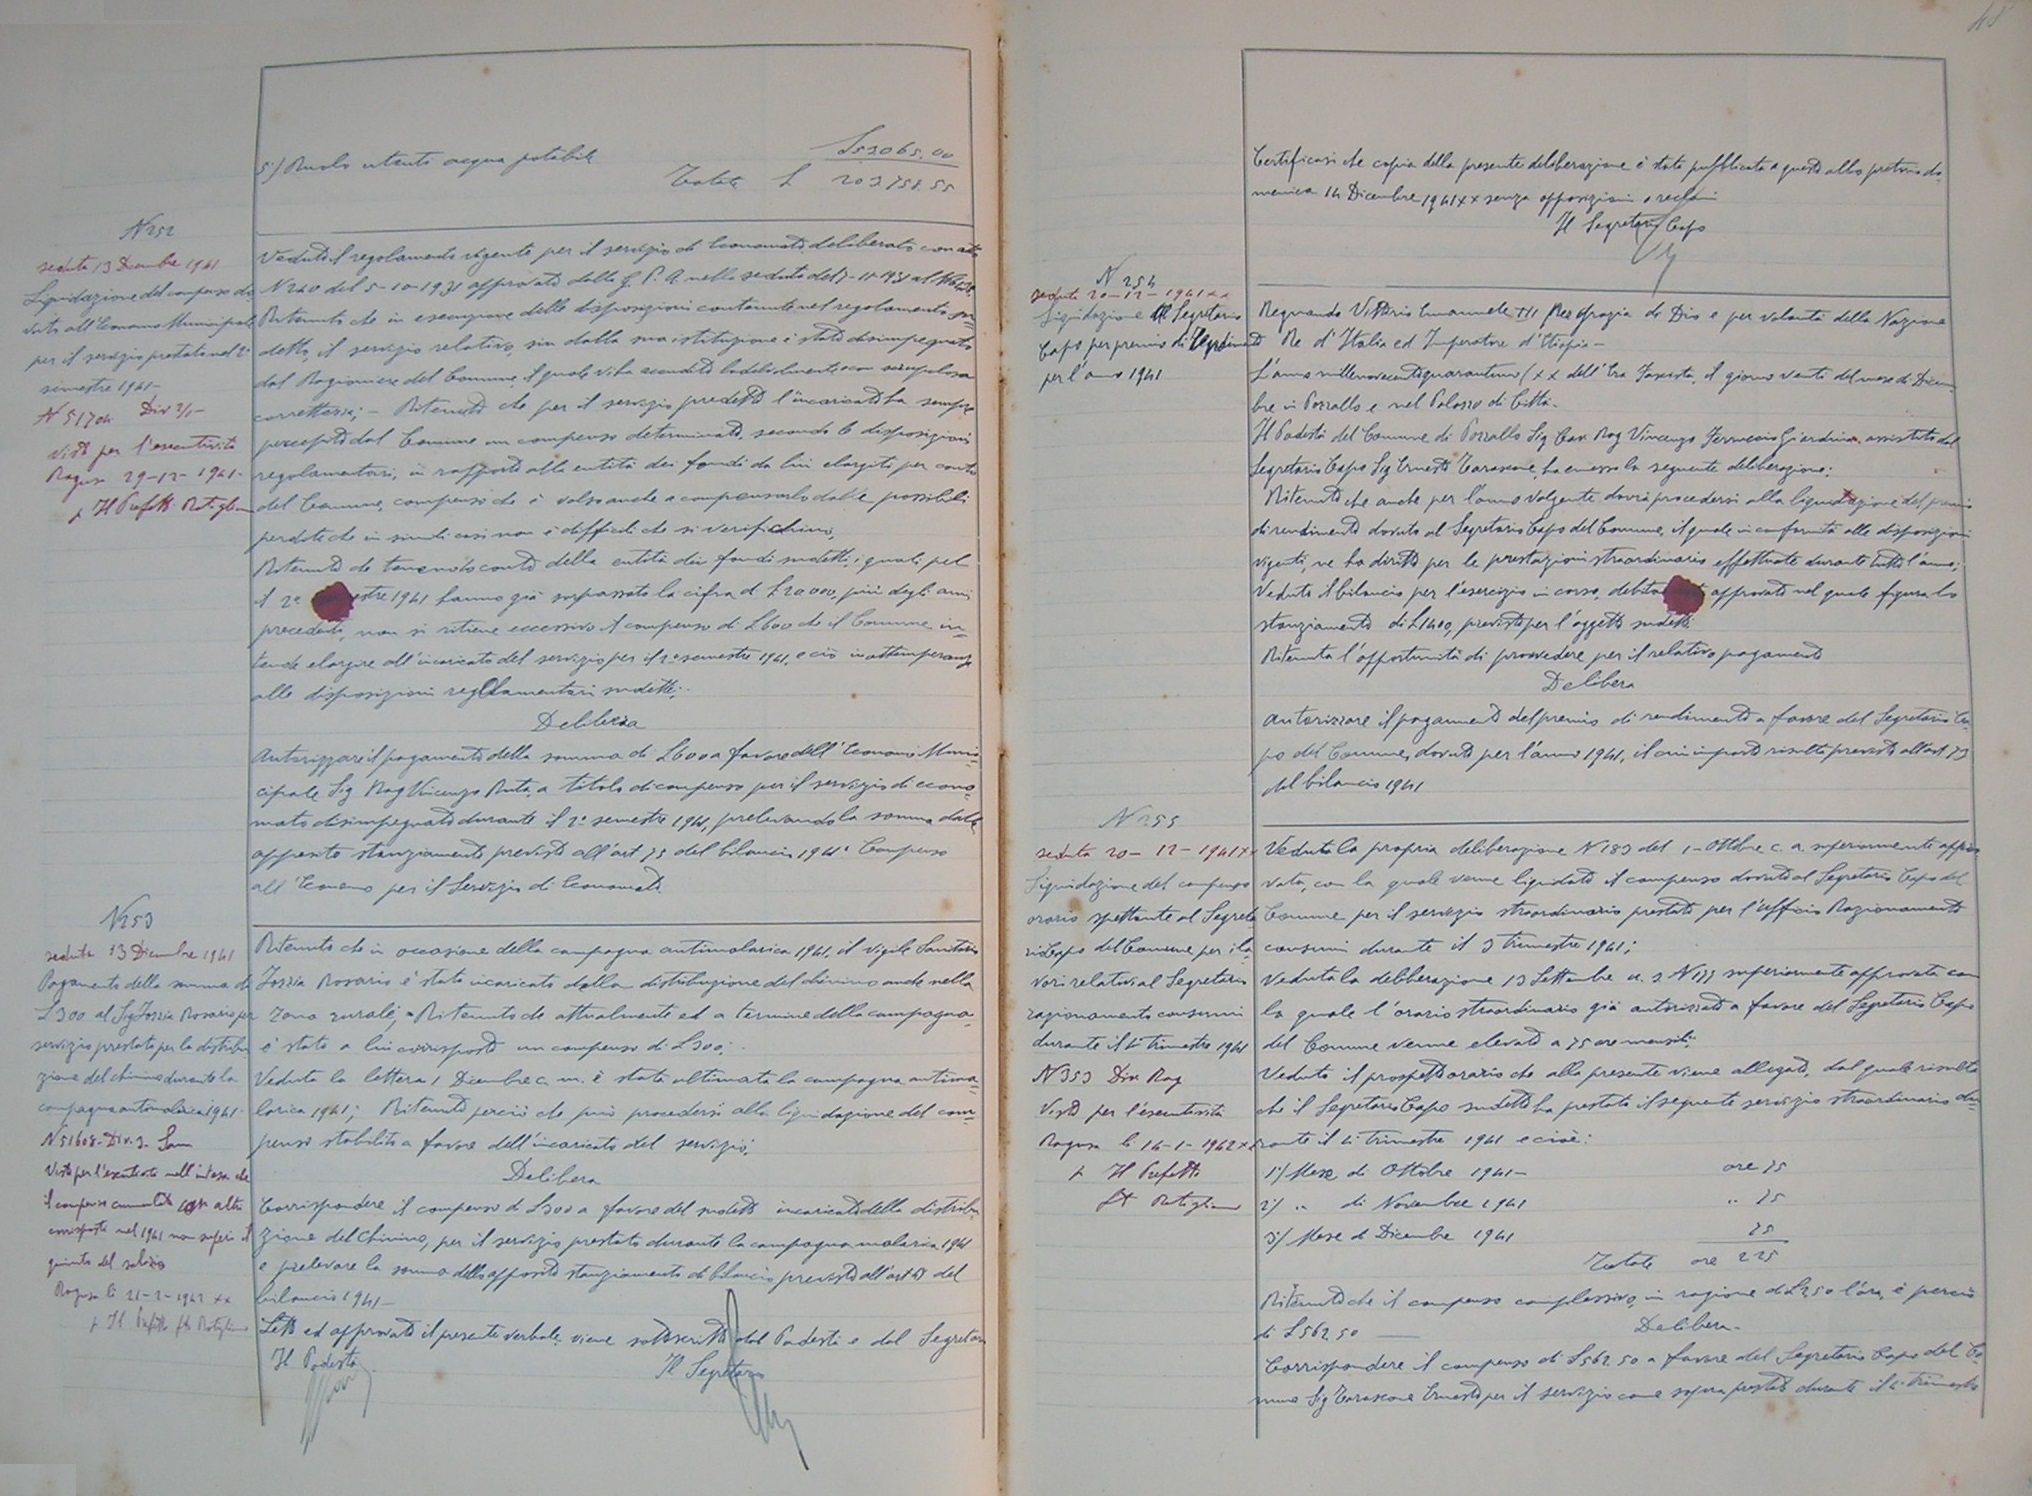 5°/ Ruolo utenti acqua potabile
Totale L
N 252
seduta 13 Dicembre 1941
Liquidazione del compenso do
vuto all'Economo Municipale
per il servizio prestato nel 2°
semestre 1941-
N 51704 Div 2/1-
visto per l'esecutività
Ragusa 29-12-1941-
p Il Prefetto
Veduto il regolamento vigente per il servizio di Economato deliberato con atto
N 240 del 5-10-1931 approvato dalla G. P. A. nella seduta del
Ritenuto che in esecuzione delle disposizioni contenute nel regolamento su=
detto, il servizio relativo, sin dalla sua istituzione è stato disimpegnato
dal Ragioniere del Comune, il quale vi ha accudito lodevolmente con scrupolosa
correttezza;- Ritenuto che per il servizio predetto l'incaricato ha sempre
percepito dal Comune un compenso determinato, secondo le disposizioni
regolamentari, in rapporto alla entità dei fondi da lui elargiti per conto
del Comune, compenso che è valso anche a compensarlo dalle possibili
perdite che in simili casi non è difficile che si verifichino,
Ritenuto che tenendo conto della entità dei fondi sudetti, i quali pel
il 2° estre 1941 hanno già sorpassato la cifra di L 20000, più degli anni
precedenti, non si ritiene eccessivo il compenso di L 600 che il Comune in=
tende elargire all'incaricato del servizio per il 2° semestre 1941, e ciò in ottemperanza
alle disposizioni regolamentari sudette;
Delibera
Autorizzare il pagamento della somma di L 600 a favore dell'Economo Muni=
cipale Sig Rag Vincenzo Ruta, a titolo di compenso per il servizio di econo=
mato disimpegnato durante il 2° semestre 1941, prelevando la somma dallo
apposito stanziamento previsto all'art 75 del bilancio 1941: Compenso
all'Economo per il Servizio di Economato.
N 253
seduta 13 Dicembre 1941
Pagamento della somma di
L 300 al Sig Iozzia Rosario per
servizio prestato per la distribu
zione del chinino durante la
campagna antimalarica 1941-
N 51608- Div. 3- San
Visto per l'esecutività nell'intesa che
il compenso cumulato con altri
corrisposti nel 1941 non superi il
quinto del salario
Ragusa li 21-2-1942 xx
p Il Prefetto
Ritenuto che in occasione della campagna antimalarica 1941, il vigile Sanitario
Iozzia Rosario è stato incaricato della distribuzione del chinino anche nella
zona rurale; Ritenuto che attualmente ed a termine della campagna,
è stato a lui corrisposto un compenso di L 300;
Veduta la lettera 1 Dicembre c. m. è stata ultimata la campagna antima=
larica 1941; Ritenuto perciò che può procedersi alla liquidazione del com=
penso stabilito a favore dell'incaricato del servizio;
Delibera
Corrispondere il compenso di L 300 a favore del sudetto incaricato della distribu=
zione del Chinino, per il servizio prestato durante la campagna malarica 1941
e prelevare la somma dallo apposito stanziamento di bilancio previsto all'art del
bilancio 1941-
Letto ed approvato il presente verbale, viene sottoscritto dal Podestà e dal Segretario
Il Podestà
Il Segretario
Certificasi che copia della presente deliberazione è stata pubblicata a questo albo pretorio do
menica 14 Dicembre 1941 xx senza opposizioni o reclami
Il Segretario Capo
N 254
seduta 20-12-1941 xx
Liquidazione al Segretario
Capo per premio di Rendimento
per l'anno 1941
Regnando Vittorio Emanuele III Per grazia di Dio e per volontà della Nazione
Re d'Italia ed Imperatore d'Etiopia-
L'anno millenovecentoquarantuno (xx dell'Era Fascista, il giorno venti del mese di Dicem
bre in Pozzallo e nel Palazzo di Città-
Il Podestà del Comune di Pozzallo Sig Cav Rag Vincenzo Ferruccio Giardina assistito dal
Segretario Capo Sig Ernesto Tarascone, ha emesso la seguente deliberazione:
Ritenuto che anche per l'anno volgente dovrà procedersi alla liquidazione del premio
di rendimento dovuto al Segretario Capo del Comune, il quale in conformità alle disposizioni
vigenti, ne ha diritto per le prestazioni straordinarie effettuate durante tutto l'anno;
Veduto il bilancio per l'esercizio in corso, debita approvato nel quale figura lo
stanziamento di L 1400, previsto per l'oggetto sudetto
Ritenuta l'opportunità di provvedere per il relativo pagamento
Delibera
Autorizzare il pagamento del premio di rendimento a favore del Segretario Ca
po del Comune, dovuto per l'anno 1941, il cui importo risulta previsto all'art 73
del bilancio 1941
N 255
seduta 20-12-1941 xx
Liquidazione del compenso
orario spettante al Segreta
rio Capo del Comune per i la
vori relativi al Segretario
razionamento consumi
durante il 4° trimestre 1941
N 353 Div Rag
Visto per l'esecutività
Ragusa li 14-1-1942 xx
p Il Prefetto
Veduta la propria deliberazione N 183 del 1-Ottobre c. a. superiormente appro
vata, con la quale venne liquidato il compenso dovuto al Segretario Capo del
Comune per il servizio straordinario prestato per l'ufficio Razionamento
consumi durante il 3 trimestre 1941;
Veduta la deliberazione 13 Settembre u. s. N 177 superiormente approvata con
la quale l'orario straordinario già autorizzato a favore del Segretario Capo
del Comune venne elevato a 75 ore mensili;
Veduto il prospetto orario che alla presente viene allegato, dal quale risulta
che il Segretario Capo sudetto ha prestato il seguente servizio straordinario du=
rante il 4° trimestre 1941 e cioè:
1°/ Mese di Ottobre 1941- ore 75
2°/ " di Novembre 1941 " 75
3°/ Mese di Dicembre 1941 75
Totale ore 225
Ritenuto che il compenso complessivo, in ragione di L 2,50 l'ora, è perciò
di L 562.50 Delibera-
Corrispondere il compenso di L 562.50 a favore del Segretario Capo del Co
mune Sig Tarascone Ernesto per il servizio come sopra prestato durante il 4° trimestre